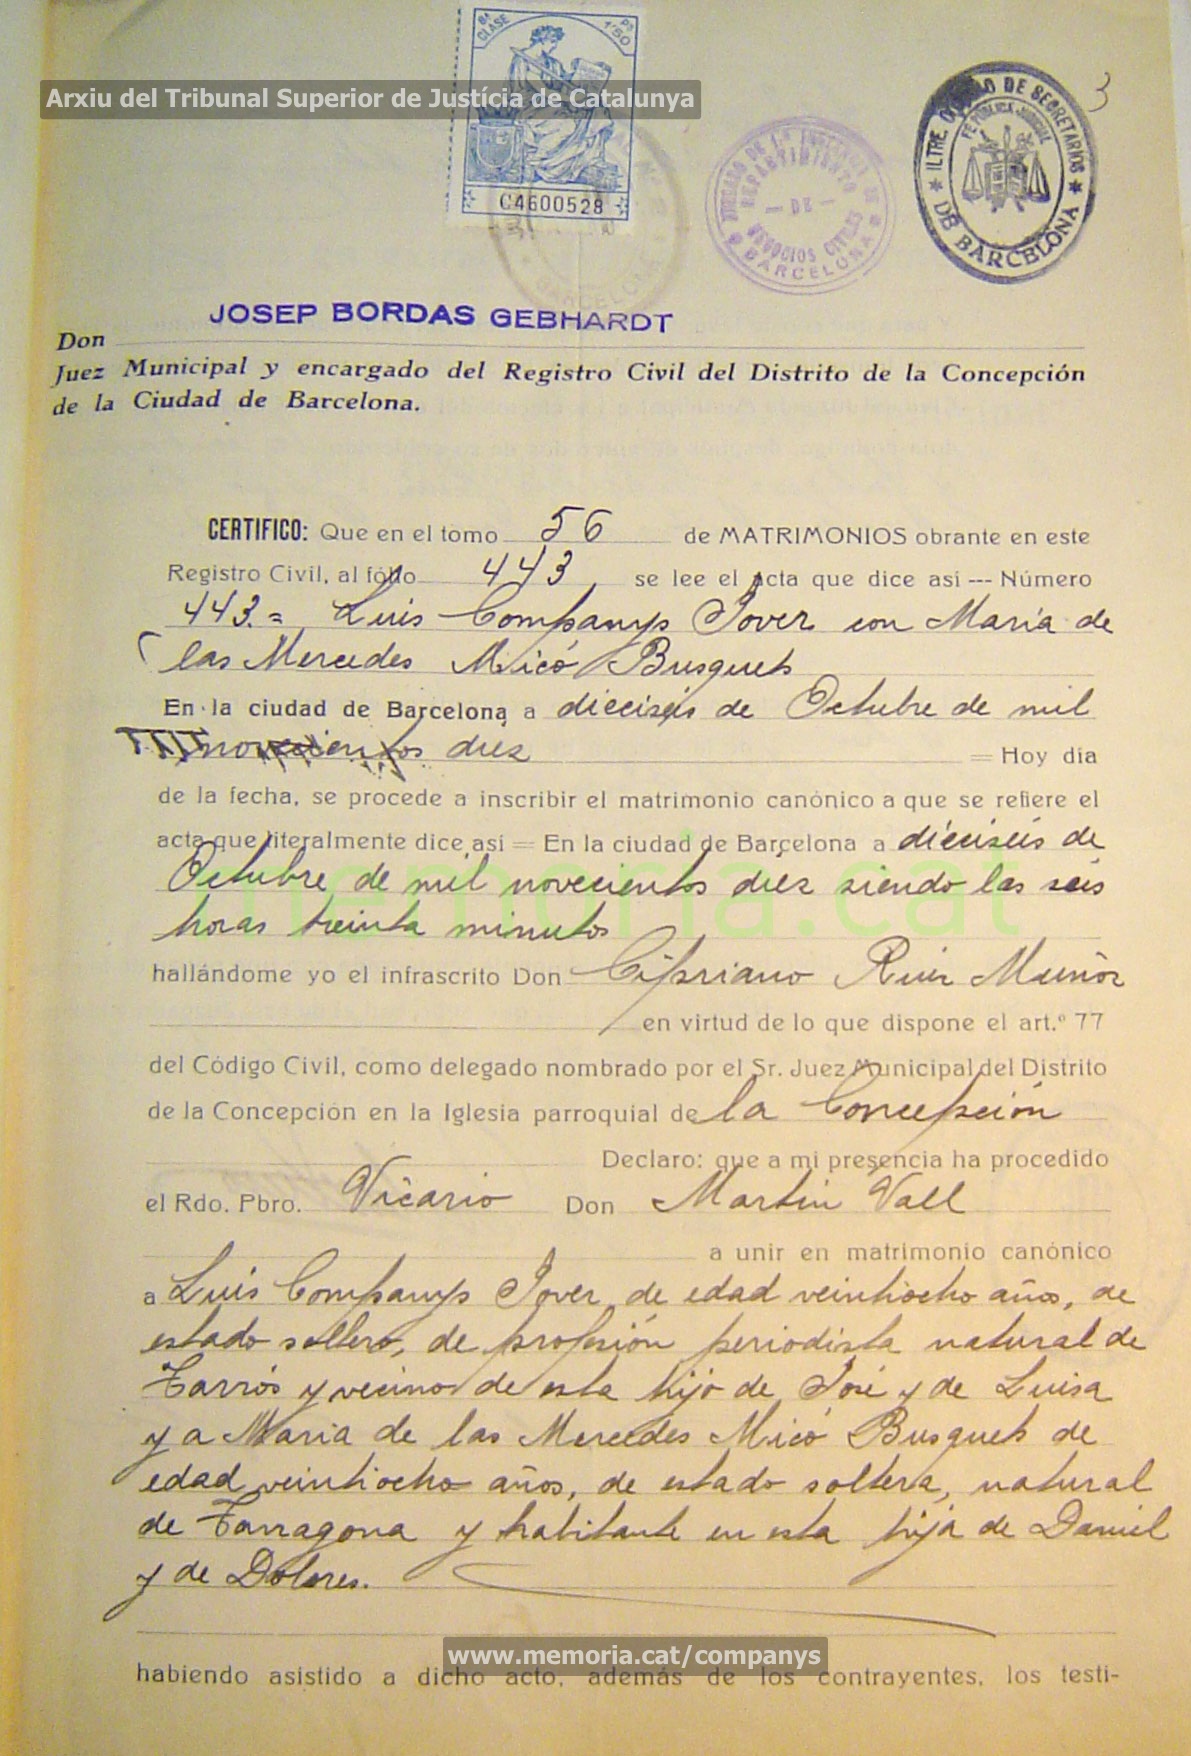 8ª CLASE
Ps 1'50
Arxiu del Tribunal Superior de Justícia de Catalunya
C4600528
JUZGADO DE 1ª INSTANCIA DE BARCELONA
REPARTIMIENTO
— DE —
NEGOCIOS CIVILES
ILTRE. COLEGIO DE SECRETARIOS
FE PUBLICA JUDICIAL
DE BARCELONA
3
JOSEP BORDAS GEBHARDT
Don
Juez Municipal y encargado del Registro Civil del Distrito de la Concepción
de la Ciudad de Barcelona.
CERTIFICO: Que en el tomo 56 de MATRIMONIOS obrante en este
Registro Civil, al fólio 443, se lee el acta que dice así --- Número
443.= Luis Companys Jover con María de
las Mercedes Micó Busquets
En la ciudad de Barcelona a dieciséis de Octubre de mil
novecientos diez = Hoy día
de la fecha, se procede a inscribir el matrimonio canónico a que se refiere el
acta que literalmente dice así = En la ciudad de Barcelona a dieciséis de
Octubre de mil novecientos diez siendo las seis
horas treinta minutos
memoria.cat
hallándome yo el infrascrito Don Cipriano Ruiz Muñoz
en virtud de lo que dispone el art.º 77
del Código Civil, como delegado nombrado por el Sr. Juez Municipal del Distrito
de la Concepción en la Iglesia parroquial de la Concepción
Declaro: que a mi presencia ha procedido
el Rdo. Pbro. Vicario Don Martin Vall
a unir en matrimonio canónico
a Luis Companys Jover, de edad veintiocho años, de
estado soltero, de profesión periodista natural de
Tarrós y vecino de esta hijo de José y de Luisa
y a Maria de las Mercedes Micó Busquets de
edad veintiocho años, de estado soltera, natural
de Tarragona y habitante en esta hija de Daniel
y de Dolores.
www.memoria.cat/companys
habiendo asistido a dicho acto, además de los contrayentes, los testi-